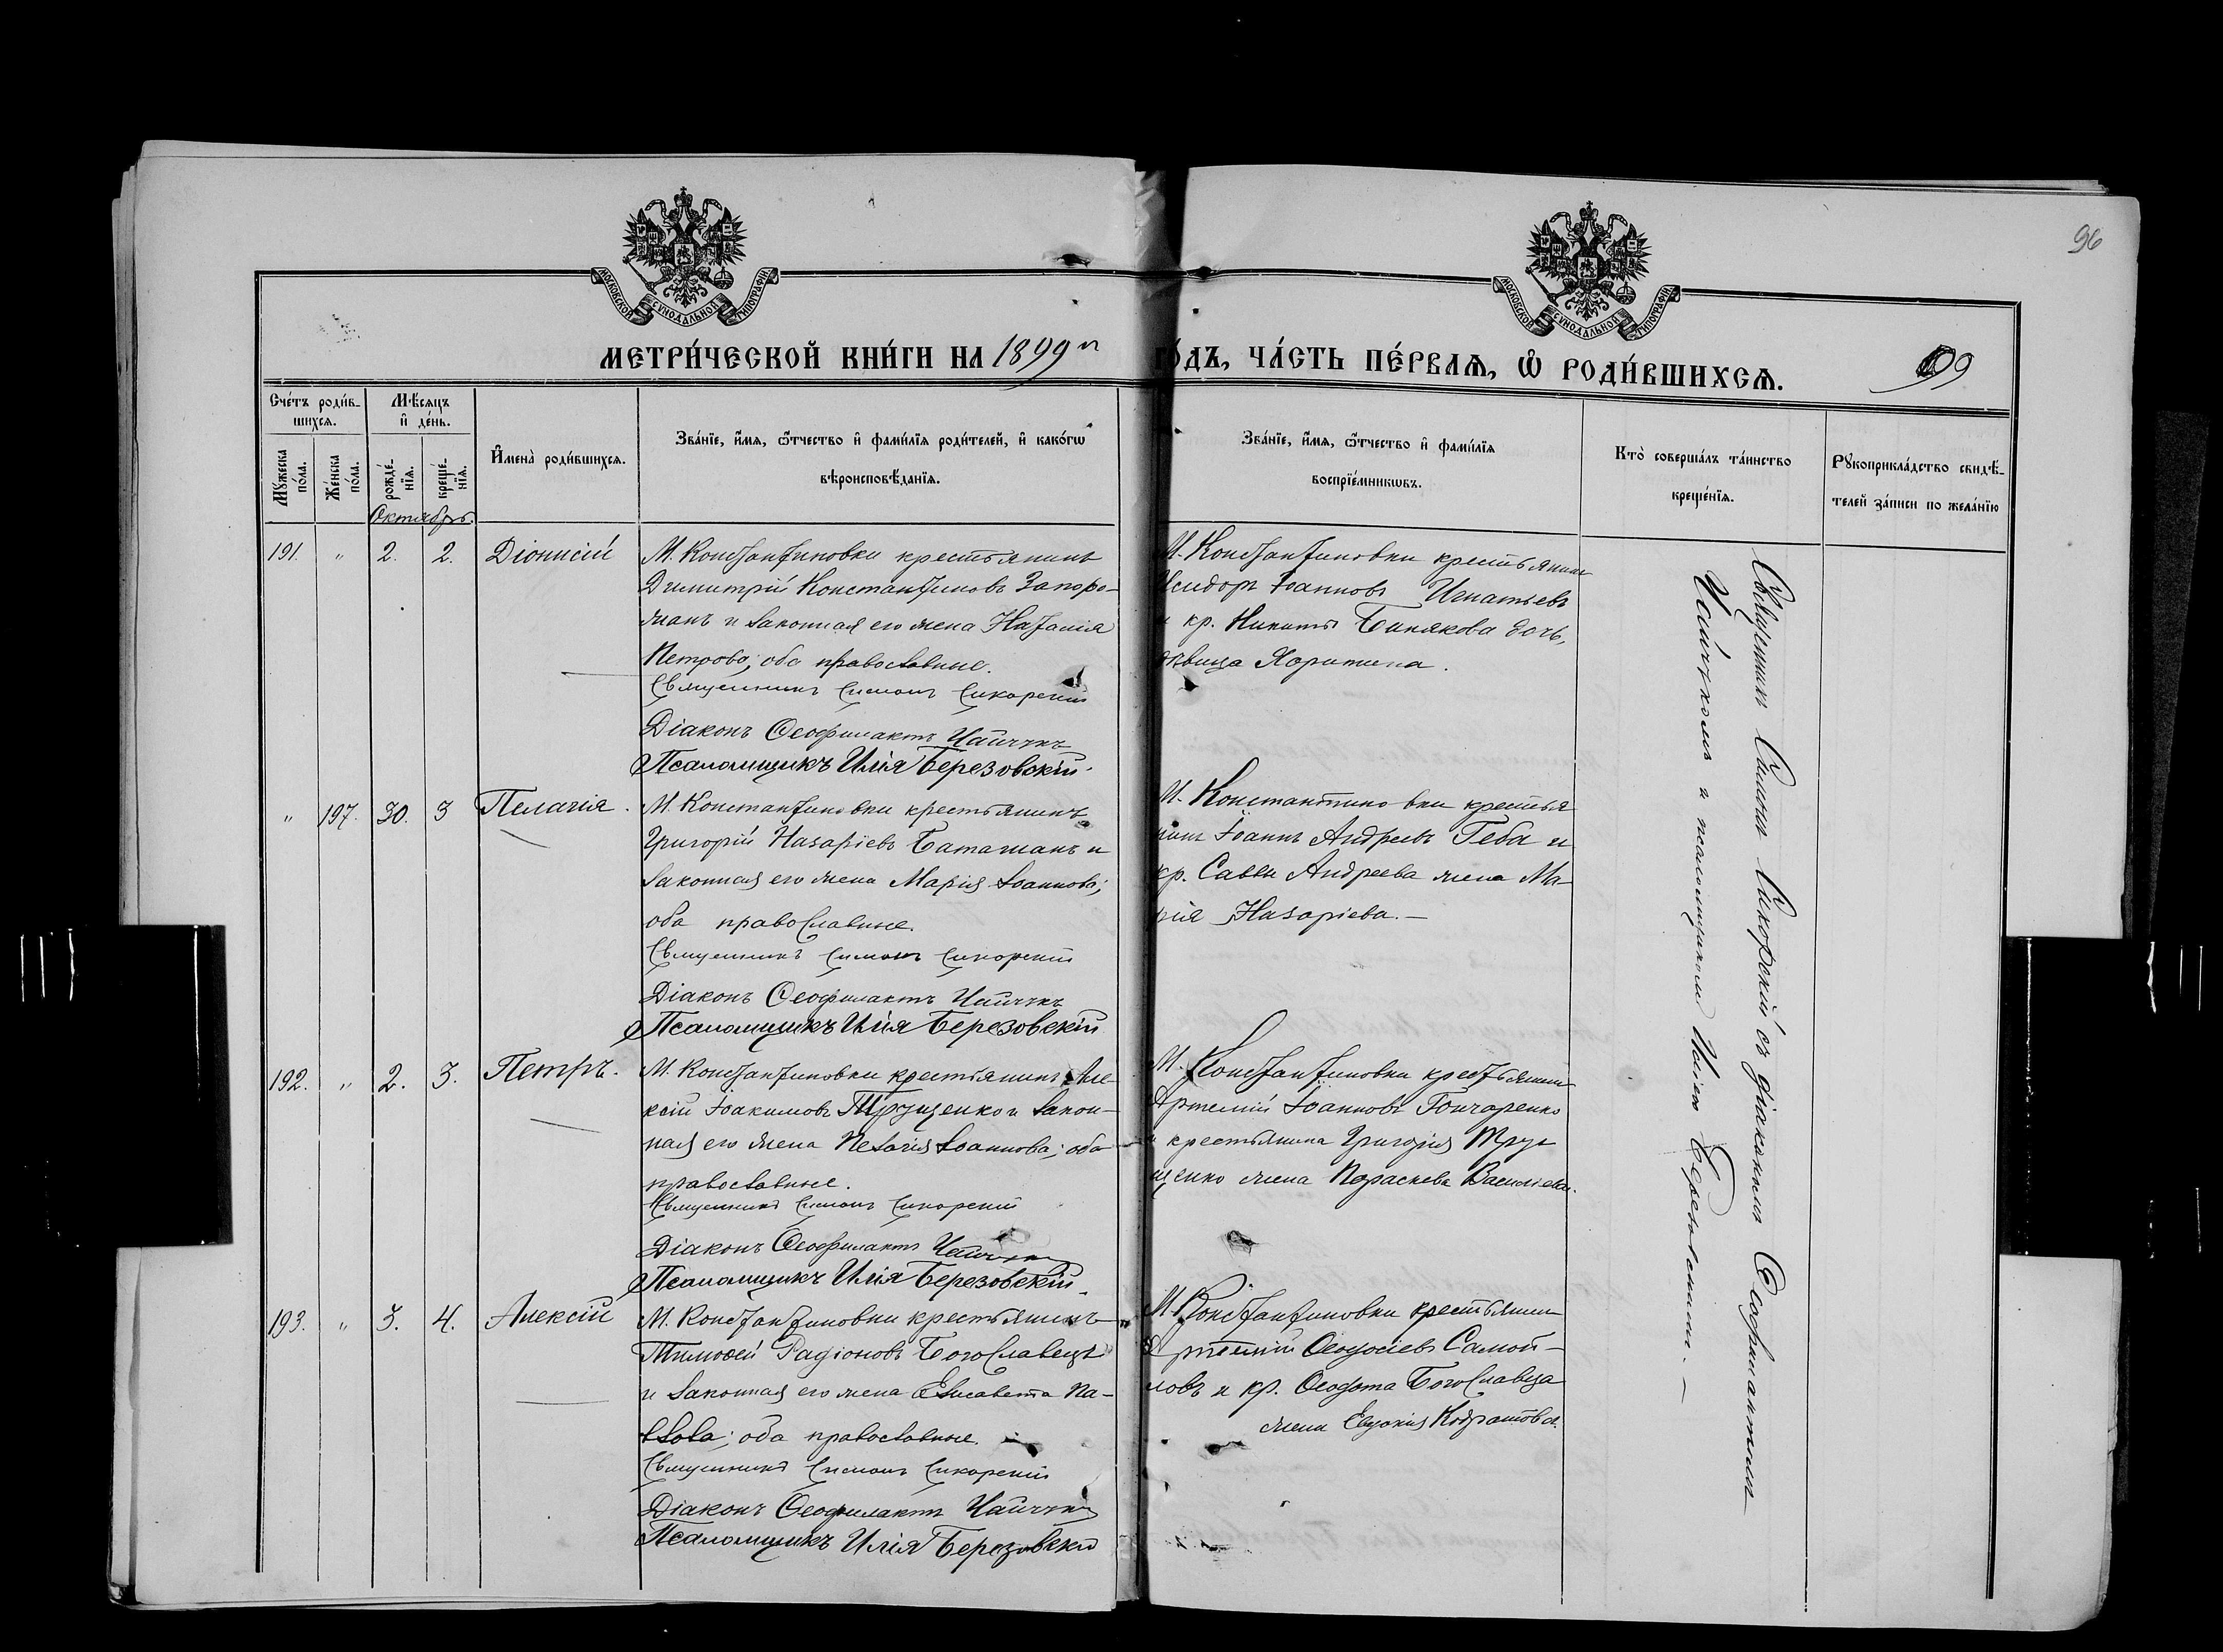 96
МОСКОВСКОЙ СѴНОДАЛЬНОЙ ТИПОГРАФІИ.
МОСКОВСКОЙ СѴНОДАЛЬНОЙ ТИПОГРАФІИ.
МЕТРИ́ЧЕСКОЙ КНИ́ГИ НА 1899й ГО́ДЪ, ЧА́СТЬ ПЕ́РВАѦ, Ѡ РОДИ́ВШИХСѦ.
99
Сче́тъ роди́в-
шихсѧ.
Мѣ́сѧцъ
и де́нь.
Му́жеска
по́ла.
Же́нска
по́ла.
рожде́-
нїѧ.
креще́-
нїѧ.
Имена̀ роди́вшихсѧ.
Зва́нїе, и́мѧ, ѻ́тчество и фами́лїѧ роди́телей, и како́гѡ
вѣроисповѣ́данїѧ.
Зва́нїе, и́мѧ, ѻ́тчество и фами́лїѧ
воспрїе́мникѡвъ.
Кто̀ соверша́лъ та́инство
креще́нїѧ.
Рꙋкоприкла́дство свидѣ́-
телей за́писи по жела́нїю
Октябрь.
191. " 2. 2. Діонисій
М. Константиновки крестьянинъ
Димитрій Константиновъ Запоро-
жанъ и законная его жена Наталія
Петрова; оба православные.
Священникъ Симонъ Сикорскій
Діаконъ Ѳеофилактъ
Псаломщикъ Илія Березовскій.
М. Константиновки крестьянинъ
Исидоръ Іоанновъ Игнатьевъ
и кр. Никиты Бинякова дочь,
дѣвица Харитина.
" 197. 30. 3 Пелагія.
М. Константиновки крестьянинъ
Григорій Назаріевъ Баташанъ и
законная его жена Марія Іоаннова;
оба православные.
Священникъ Симонъ Сикорскій
Діаконъ Ѳеофилактъ
Псаломщикъ Илія Березовскій
М. Константиновки крестья
нинъ Іоаннъ Андреевъ Геба и
кр. Саввы Андреева жена Ма-
рія Назаріева.—
192. " 2. 3. Петръ.
М. Константиновки крестьянинъ Але-
ксій Іоакимовъ Трущенко и закон-
ная его жена Пелагія Іоаннова; оба
православные.
Священникъ Симонъ Сикорскій
Діаконъ Ѳеофилактъ
Псаломщикъ Илія Березовскій.
М. Константиновки крестьянинъ
Артемій Іоанновъ Гончаренко
и крестьянина Григорія Тру-
щенко жена Параскева Василіева.
193. " 3. 4. Алексій
М. Константиновки крестьянинъ
Тимоѳей Радіоновъ Богославецъ
и законная его жена Елисавета Па-
влова; оба православные.
Священникъ Симонъ Сикорскій
Діаконъ Ѳеофилактъ
Псаломщикъ Илія Березовскій
М. Константиновки крестьянинъ
Артемій Ѳеодосіевъ Самой-
ловъ и кр. Ѳеодота Богославца
жена Евдокія Кодратова.
Священникъ Симонъ Сикорскій съ діакономъ Ѳеофилактомъ
и псаломщикомъ Иліею Березовскимъ.—